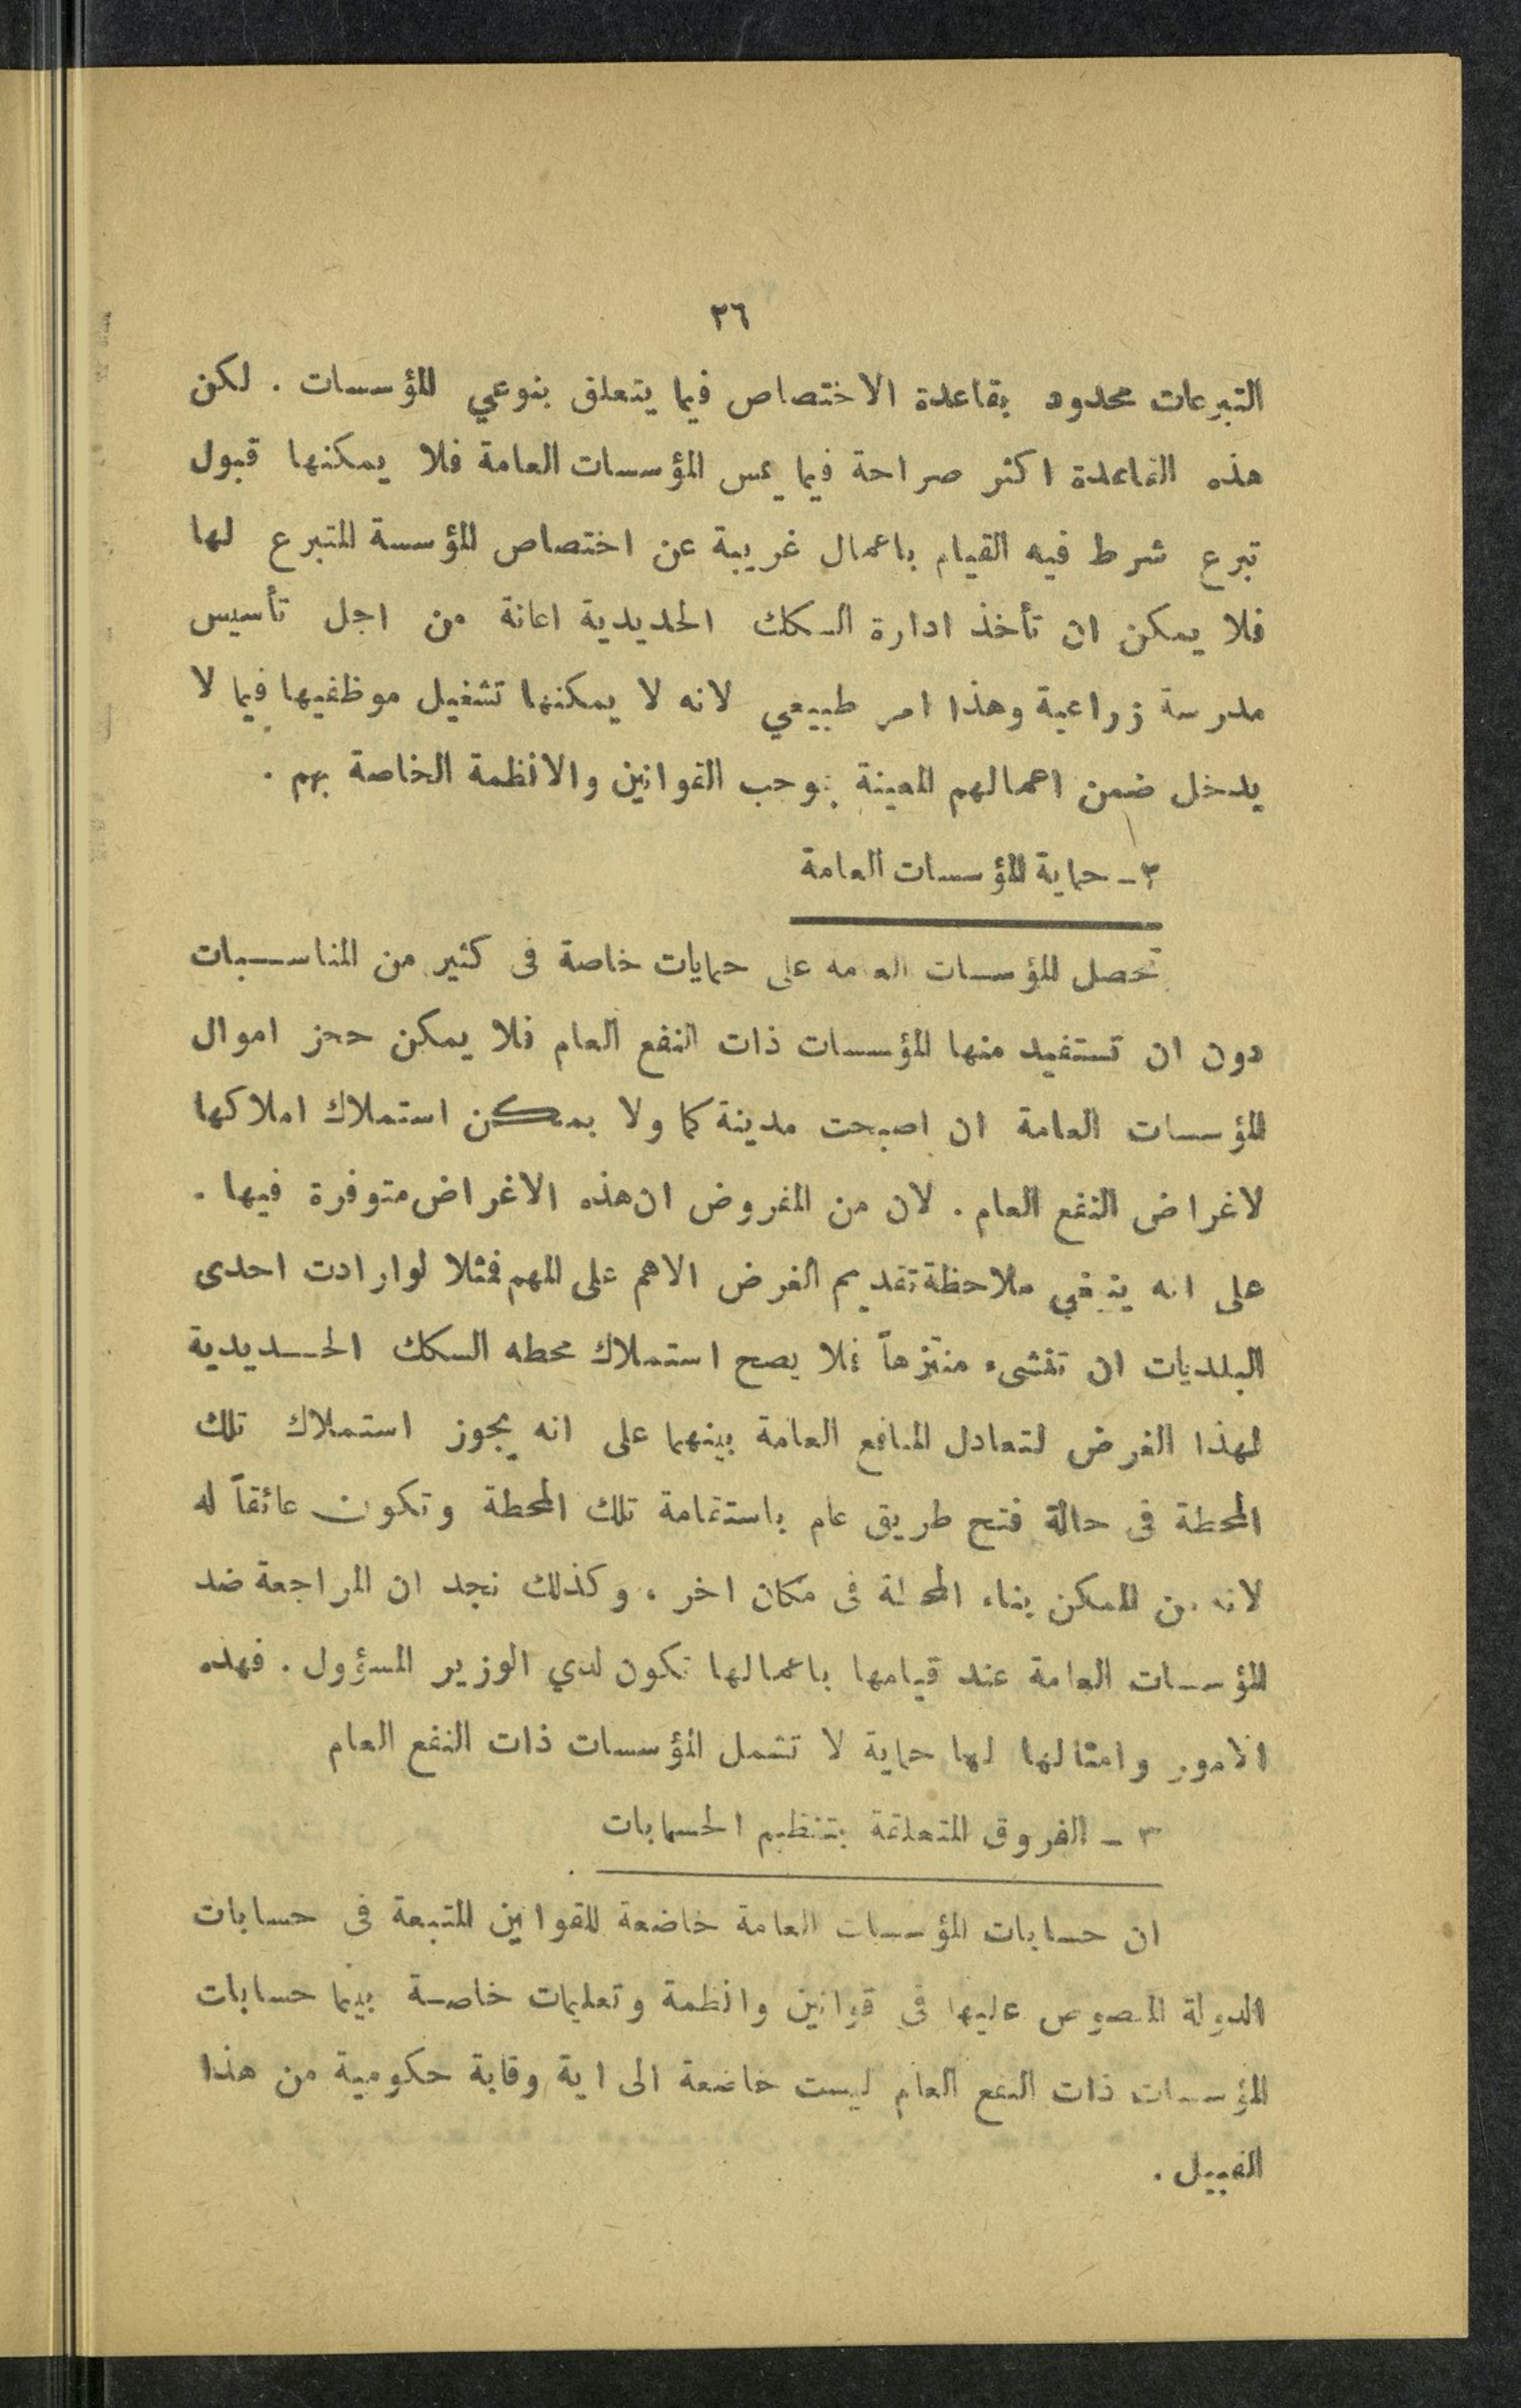 ٢٦
التبرعات محدود بقاعدة الاختصاص فيما يتعلق بنوعي المؤسسات . لكن
هذه القاعدة اكثر صراحة فيما يمس المؤسسات العامة فلا يمكنها قبول
تبرع شرط فيه القيام باعمال غريبة عن اختصاص المؤسسة المتبرع لها
فلا يمكن ان تأخذ ادارة السكك الحديدية اعانة من اجل تأسيس
مدرسة زراعية وهذا امر طبيعي لانه لا يمكنها تشغيل موظفيها فيما لا
يدخل ضمن اعمالهم المعينة بوجب القوانين والانظمة الخاصة بهم .
٢ - حماية المؤسسات العامة
تحصل المؤسسات العامه على حمايات خاصة فى كثير من المناسبات
دون ان تستفيد منها المؤسسات ذات النفع العام فلا يمكن حجز اموال
المؤسسات العامة ان اصبحت مدينة كما ولا يمكن استملاك املاكها
لاغراض النفع العام . لان من المفروض ان هذه الاغراض متوفرة فيها .
على انه ينبغي ملاحظة تقديم الغرض الاهم على المهم فمثلا لو ارادت احدى
البلديات ان تنشىء منتزهاً فلا يصح استملاك محطه السكك الحديدية
لهذا الغرض لتعادل المنافع العامة بينهما على انه يجوز استملاك تلك
المحطة فى حالة فتح طريق عام باستقامة تلك المحطة وتكون عائقاً له
لانه من الممكن بناء المحطة فى مكان اخر ، وكذلك نجد ان المراجعة ضد
المؤسسات العامة عند قيامها باعمالها تكون لدي الوزير المسؤول . فهذه
الامور وامثالها لها حماية لا تشمل المؤسسات ذات النفع العام
٣ - الفروق المتعلقة بتنظيم الحسابات
ان حسابات المؤسسات العامة خاضعة للقوانين المتبعة فى حسابات
الدولة المنصوص عليها فى قوانين وانظمة وتعليمات خاصة بينما حسابات
المؤسسات ذات النفع العام ليست خاضعة الى اية رقابة حكومية من هذا
القبيل .